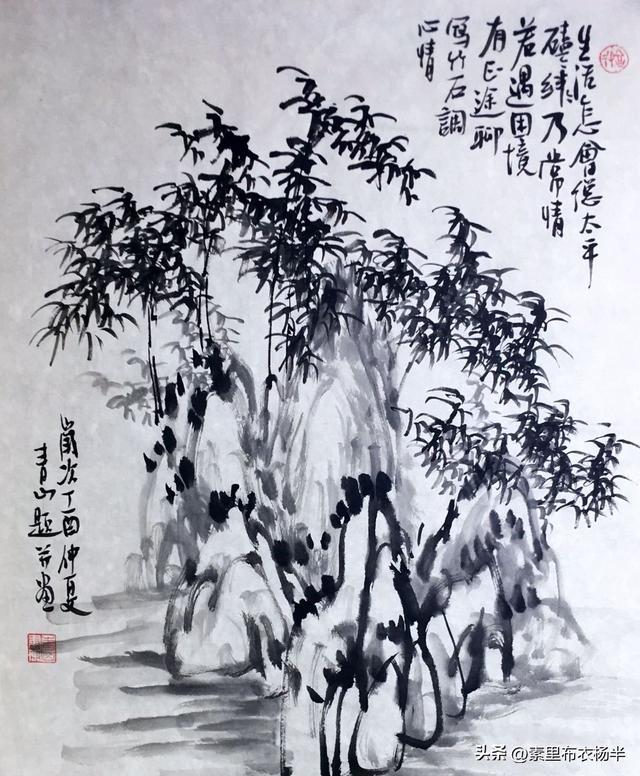 生活怎會總太平
磕々絆々乃常情
若遇困境
有正途聊
寫竹石調
心情
歲次丁酉仲夏
青山題并畫
头条 @素里布衣杨半